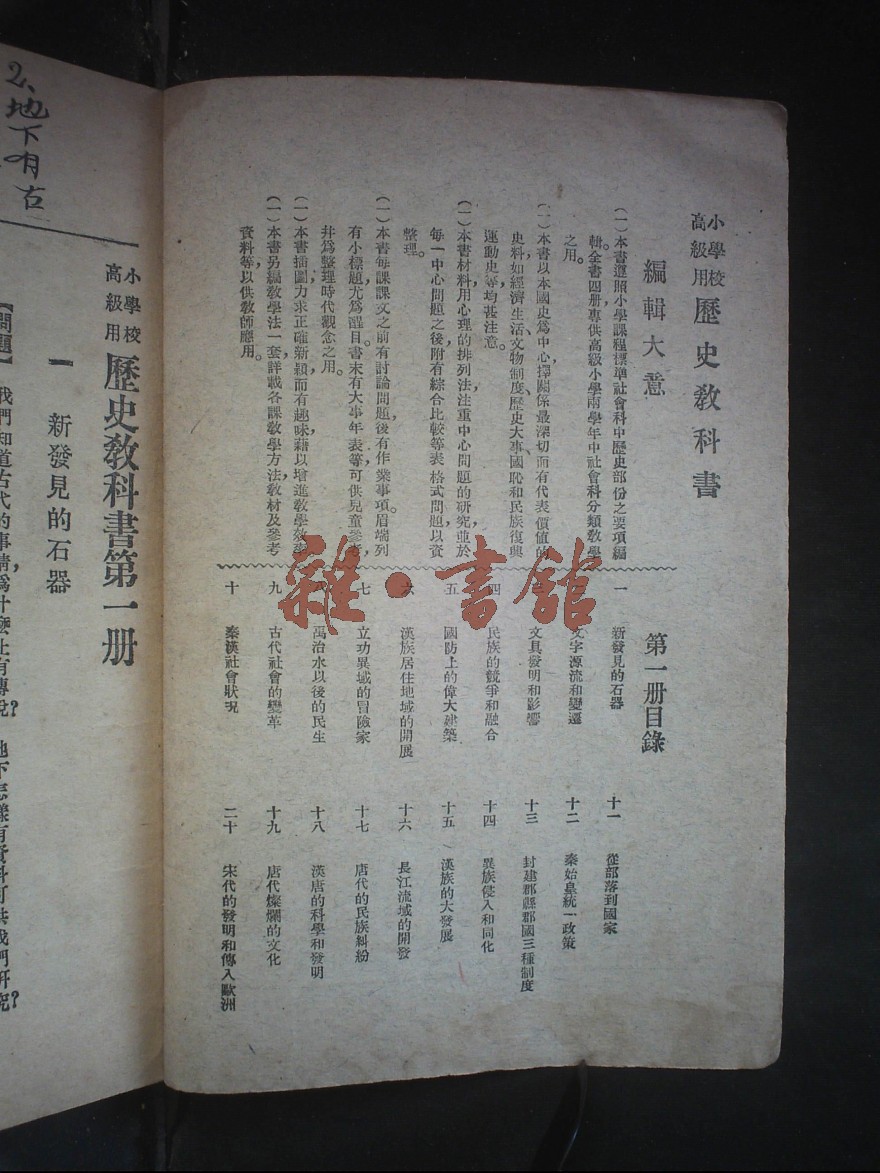 小學校
高級用
歷史敎科書
編輯大意
(一)本書遵照小學課程標準社會科中歷史部份之要項編
輯。全書四册專供高級小學兩學年中社會科分類敎學
之用。
(一)本書以本國史爲中心,擇關係最深切而有代表價値的
史料如經濟生活、文物制度、歷史大事國恥和民族復興
運動史等,均甚注意。
(一)本書材料,用心理的排列法注重中心問題的研究,並於
每一中心問題之後附有綜合比較等表格式問題以資
整理。
(一)本書每課課文之前有討論問題,後有作業事項。眉端列
有小標題尤爲醒目。書末有大事年表等,可供兒童參考,
幷爲整理時代觀念之用。
(一)本書插圖力求正確新穎而有趣味,藉以增進敎學效率
(一)本書另編敎學法一套,詳載各課敎學方法敎材及參考
資料等以供敎師應用。
第一册目錄
一 新發見的石器
文字源流和變遷
三 文具發明和影響
四 民族的競爭和融合
五 國防上的偉大建築
六 漢族居住地域的開展
七 立功異域的冒險家
八 禹治水以後的民生
九 古代社會的變革
十 秦漢社會狀況
十一 從部落到國家
十二 秦始皇統一政策
十三 封建郡縣郡國三種制度
十四 異族侵入和同化
十五 漢族的大發展
十六 長江流域的開發
十七 唐代的民族糾紛
十八 漢唐的科學和發明
十九 唐代燦爛的文化
二十 宋代的發明和傳入歐洲
雜·書館
2、地下有古
小學校
高級用
歷史敎科書第一册
一 新發見的石器
【問題】我們知道古代的事情,爲什麼止有傳說?地下怎樣有資料可供我們硏究?